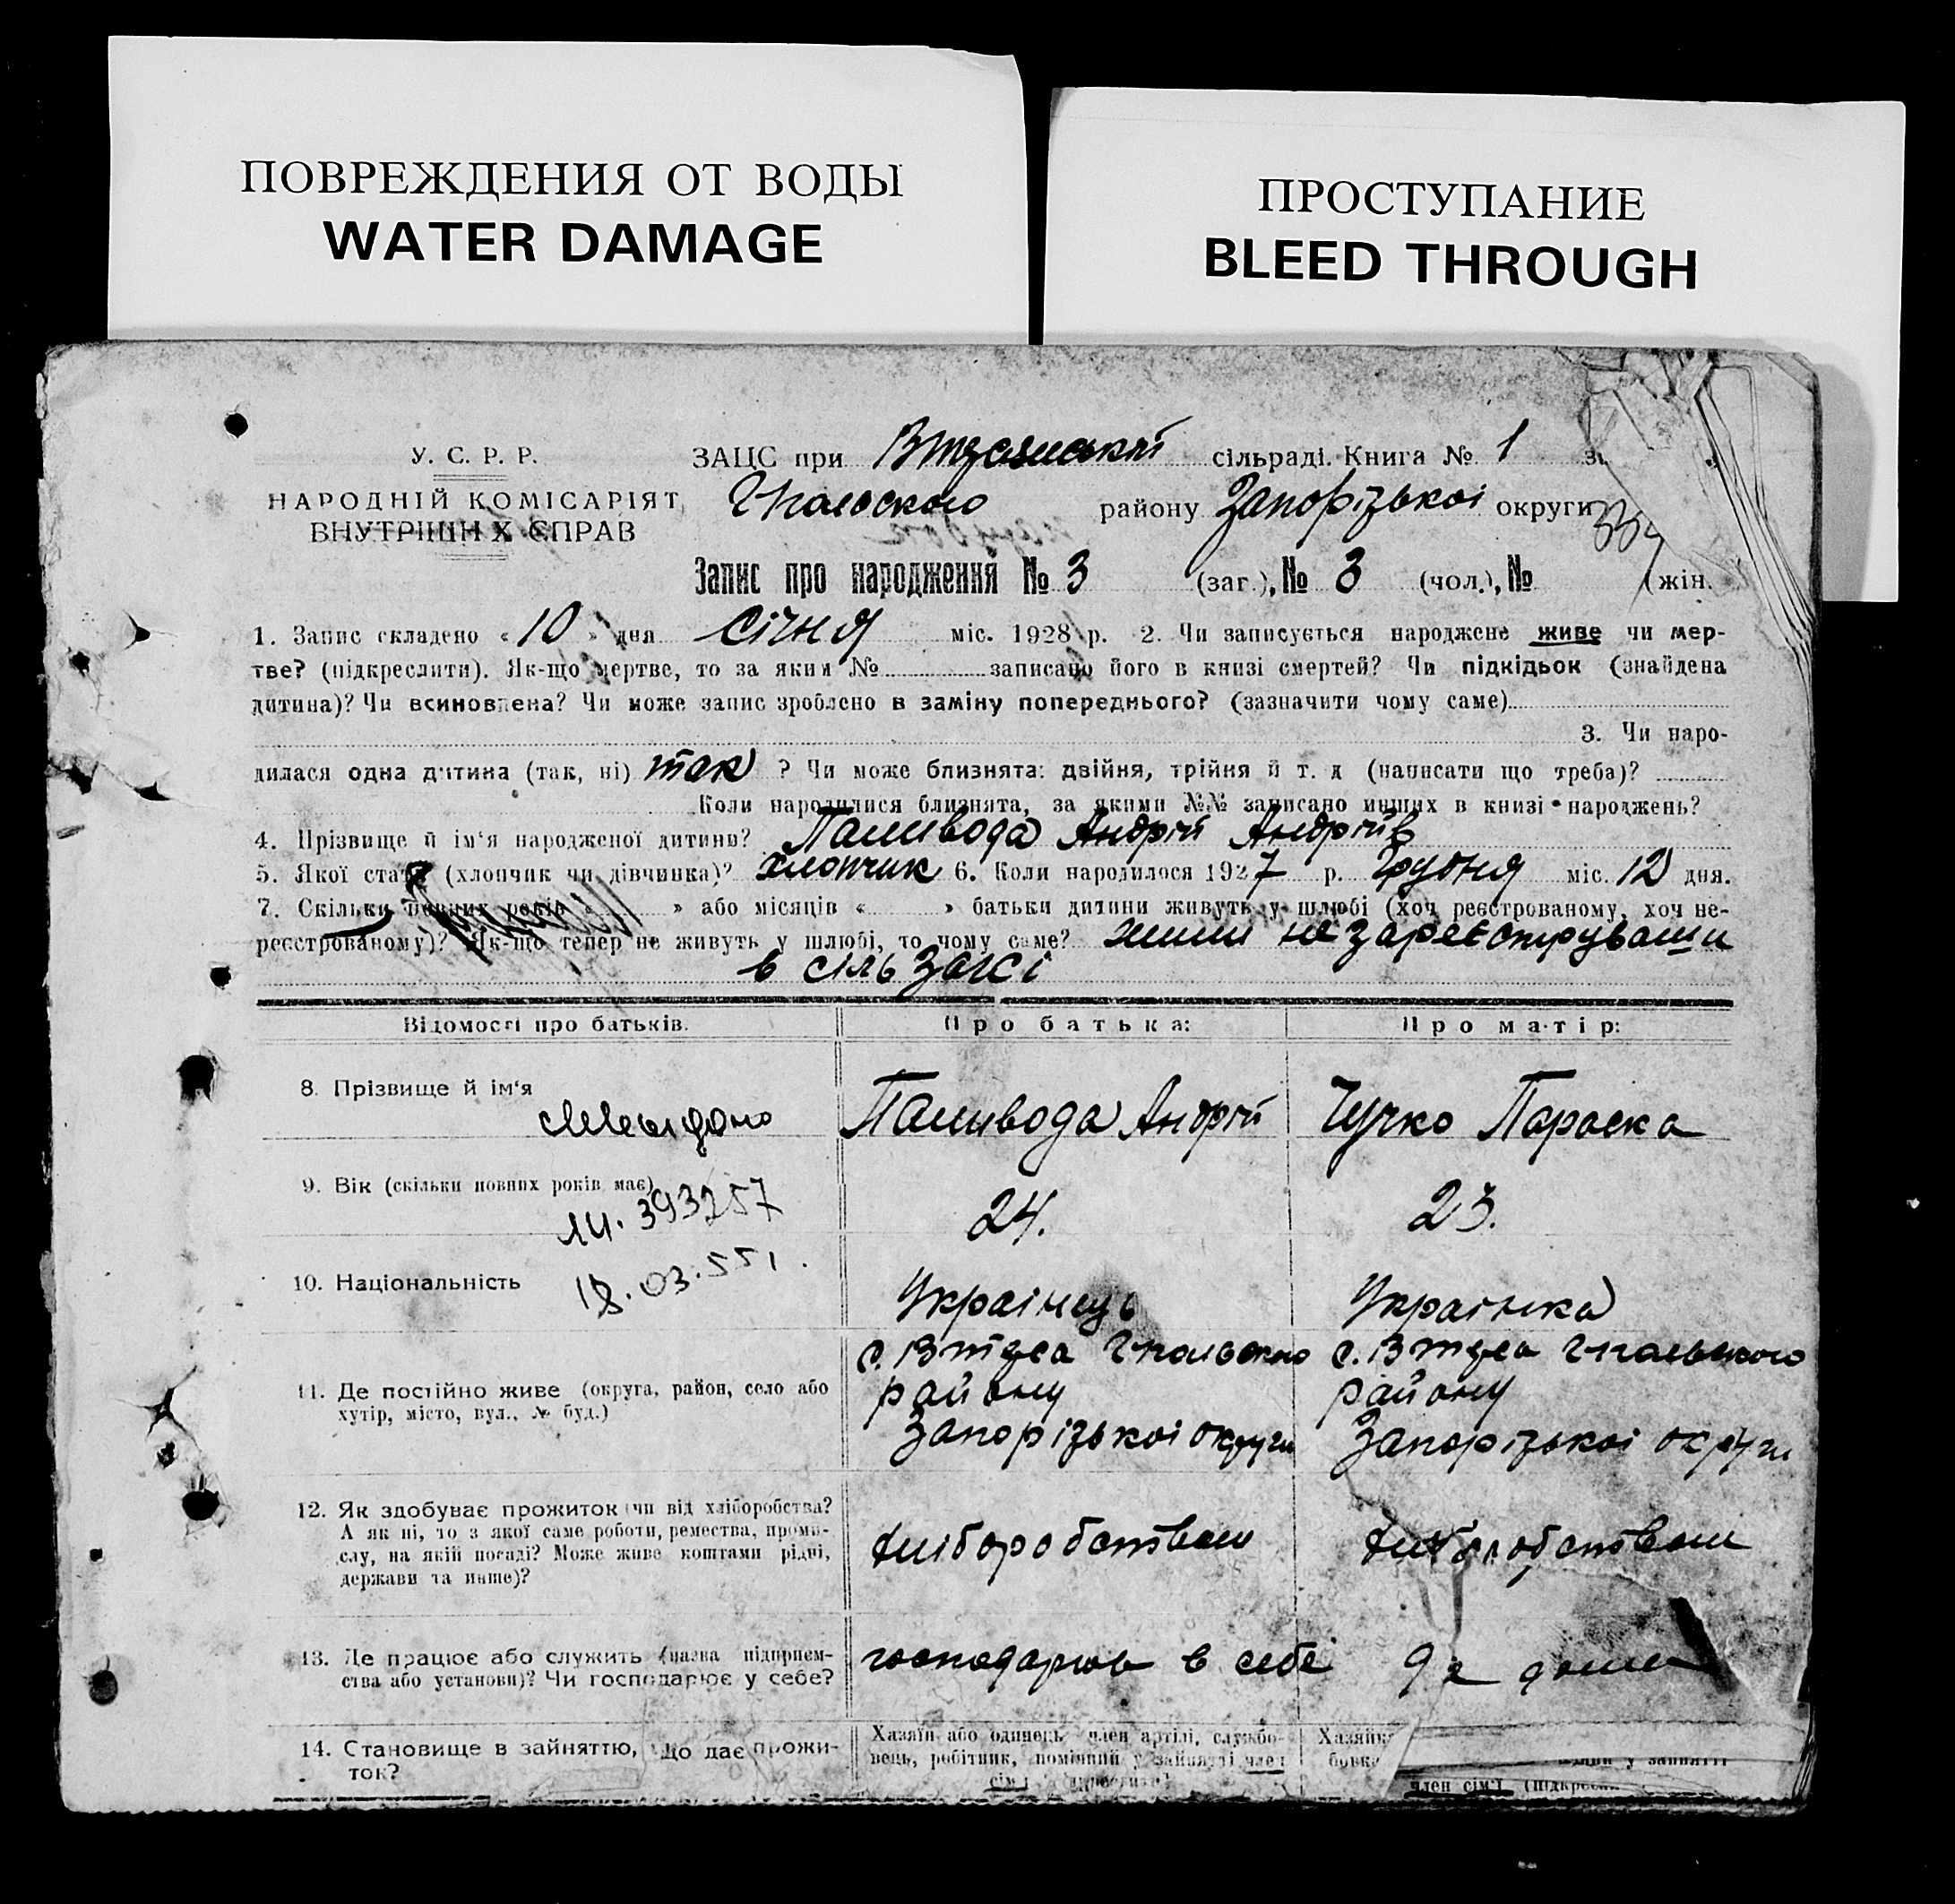 ПОВРЕЖДЕНИЯ ОТ ВОДЫ
WATER DAMAGE
ПРОСТУПАНИЕ
BLEED THROUGH
У. С. Р. Р.
НАРОДНІЙ КОМІСАРІЯТ
ВНУТРІШНІХ СПРАВ
ЗАЦС при сільраді. Книга № 1
району Запорізької округи 339
Запис про народження № 3 (заг.), № 3 (чол.), № (жін.
1. Запис складено « 10 » дня січня міс. 1928 р. 2. Чи записується народжене живе чи мер-
тве? (підкреслити). Як-що мертве, то за яким № записано його в книзі смертей? Чи підкідьок (знайдена
дитина)? Чи всиновлена? Чи може запис зроблено в заміну попереднього? (зазначити чому саме)
3. Чи наро-
дилася одна дитина (так, ні) так ? Чи може близнята: двійня, трійня й т. д (написати що треба)?
Коли народилися близнята, за якими №№ записано инших в книзі народжень?
4. Прізвище й ім‘я народженої дитини? Паливода Андрій Андріїв
5. Якої статі (хлопчик чи дівчинка)? хлопчик 6. Коли народилося 1927 р. Грудня міс. 12 дня.
7. Скільки повних років » або місяців « » батьки дитини живуть у шлюбі (хоч реєстрованому, хоч не-
реєстрованому)? Як-що тепер не живуть у шлюбі, то чому саме? не зареєстрували
в сільзагсі
Відомості про батьків.
Про батька:
Про матір:
8. Прізвище й ім‘я
Паливода Андрій
Чучко Параска
9. Вік (скільки повних років має)
393257
24.
23.
10. Національність
18.03.551.
Українець
Українка
11. Де постійно живе (округа, район, село або
хутір, місто, вул., № буд.)
району
Запорізької округи
району
Запорізької округи
12. Як здобуває прожиток (чи від хліборобства?
А як ні, то з якої саме роботи, ремества, проми-
слу, на якій посаді? Може живе коштами рідні,
держави та инше)?
хліборобством
хліборобством
13. Де працює або служить (назва підприєм-
ства або установи)? Чи господарює у себе?
господарює в себе
14. Становище в зайняттю, що дає прожи-
ток?
Хазяїн або одинець член артілі, службо-
вець, робітник, помічний у зайнятті член
Хазяйка
член сім‘ї